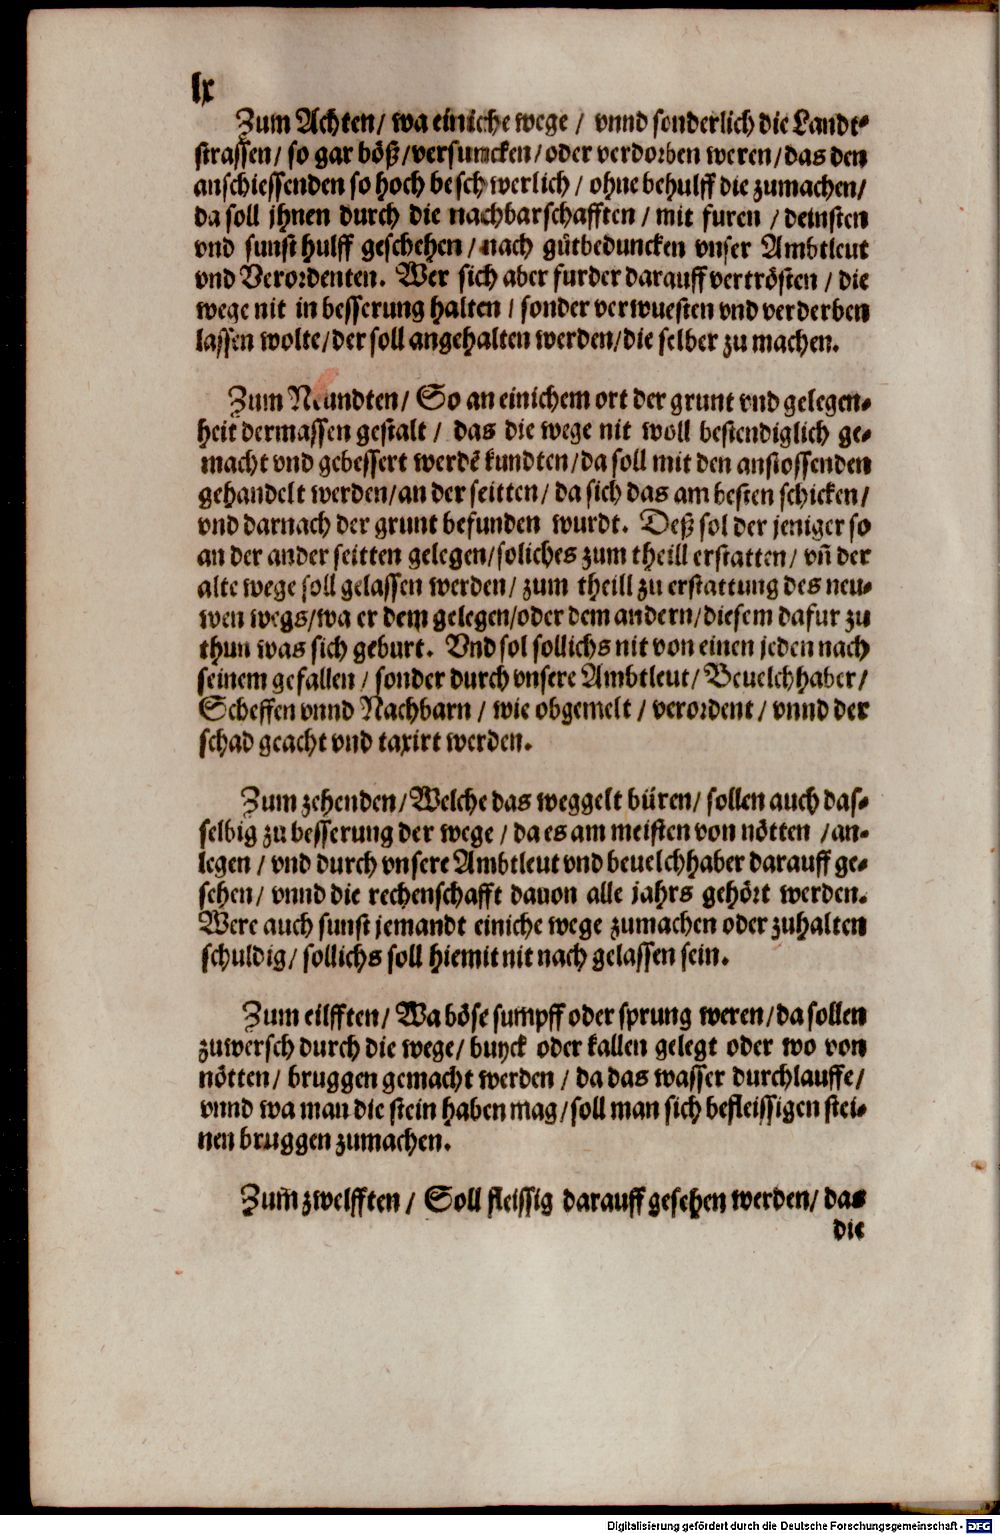 lx
Zum Achten/ wa einiche wege / vnnd sonderlich die Landt⸗
strassen/ so gar böß/versuncken/oder verdorben weren/das den
anschiessenden so hoch beschwerlich / ohne behulff die zumachen/
da soll jhnen durch die nachbarschafften / mit furen / deinsten
vnd sunst hulff geschehen/ nach gůtbeduncken vnser Ambtleut
vnd Verordenten. Wer sich aber furder darauff vertrösten / die
wege nit in besserung halten / sonder verwuesten vnd verderben
lassen wolte/der soll angehalten werden/die selber zu machen.
Zum Neundten/ So an einichem ort der grunt vnd gelegen⸗
heit dermassen gestalt / das die wege nit woll bestendiglich ge⸗
macht vnd gebessert werdē kundten/da soll mit den anstossenden
gehandelt werden/an der seitten/ da sich das am besten schicken/
vnd darnach der grunt befunden wurdt. Deß sol der jeniger so
an der ander seitten gelegen/soliches zum theill erstatten/ vñ der
alte wege soll gelassen werden/ zum theill zu erstattung des neu⸗
wen wegs/wa er dem gelegen/oder dem andern/diesem dafur zu
thun was sich geburt. Vnd sol sollichs nit von einen jeden nach
seinem gefallen / sonder durch vnsere Ambtleut/ Beuelchhaber/
Scheffen vnnd Nachbarn / wie obgemelt / verordent / vnnd der
schad geacht vnd taxirt werden.
Zum zehenden/Welche das weggelt büren/ sollen auch das⸗
selbig zu besserung der wege / da es am meisten von nötten /an⸗
legen / vnd durch vnsere Ambtleut vnd beuelchhaber darauff ge⸗
sehen/ vnnd die rechenschafft dauon alle jahrs gehört werden.
Were auch sunst jemandt einiche wege zumachen oder zuhalten
schuldig/ sollichs soll hiemit nit nach gelassen sein.
Zum eilfften/ Wa böse sumpff oder sprung weren/da sollen
zuwersch durch die wege/ buyck oder kallen gelegt oder wo von
nötten/ bruggen gemacht werden / da das wasser durchlauffe/
vnnd wa man die stein haben mag/soll man sich befleissigen stei⸗
nen bruggen zumachen.
Zum̄ zwelfften / Soll fleissig darauff gesehen werden/ das
die
Digitalisierung gefördert durch die Deutsche Forschungsgemeinschaft - DFG